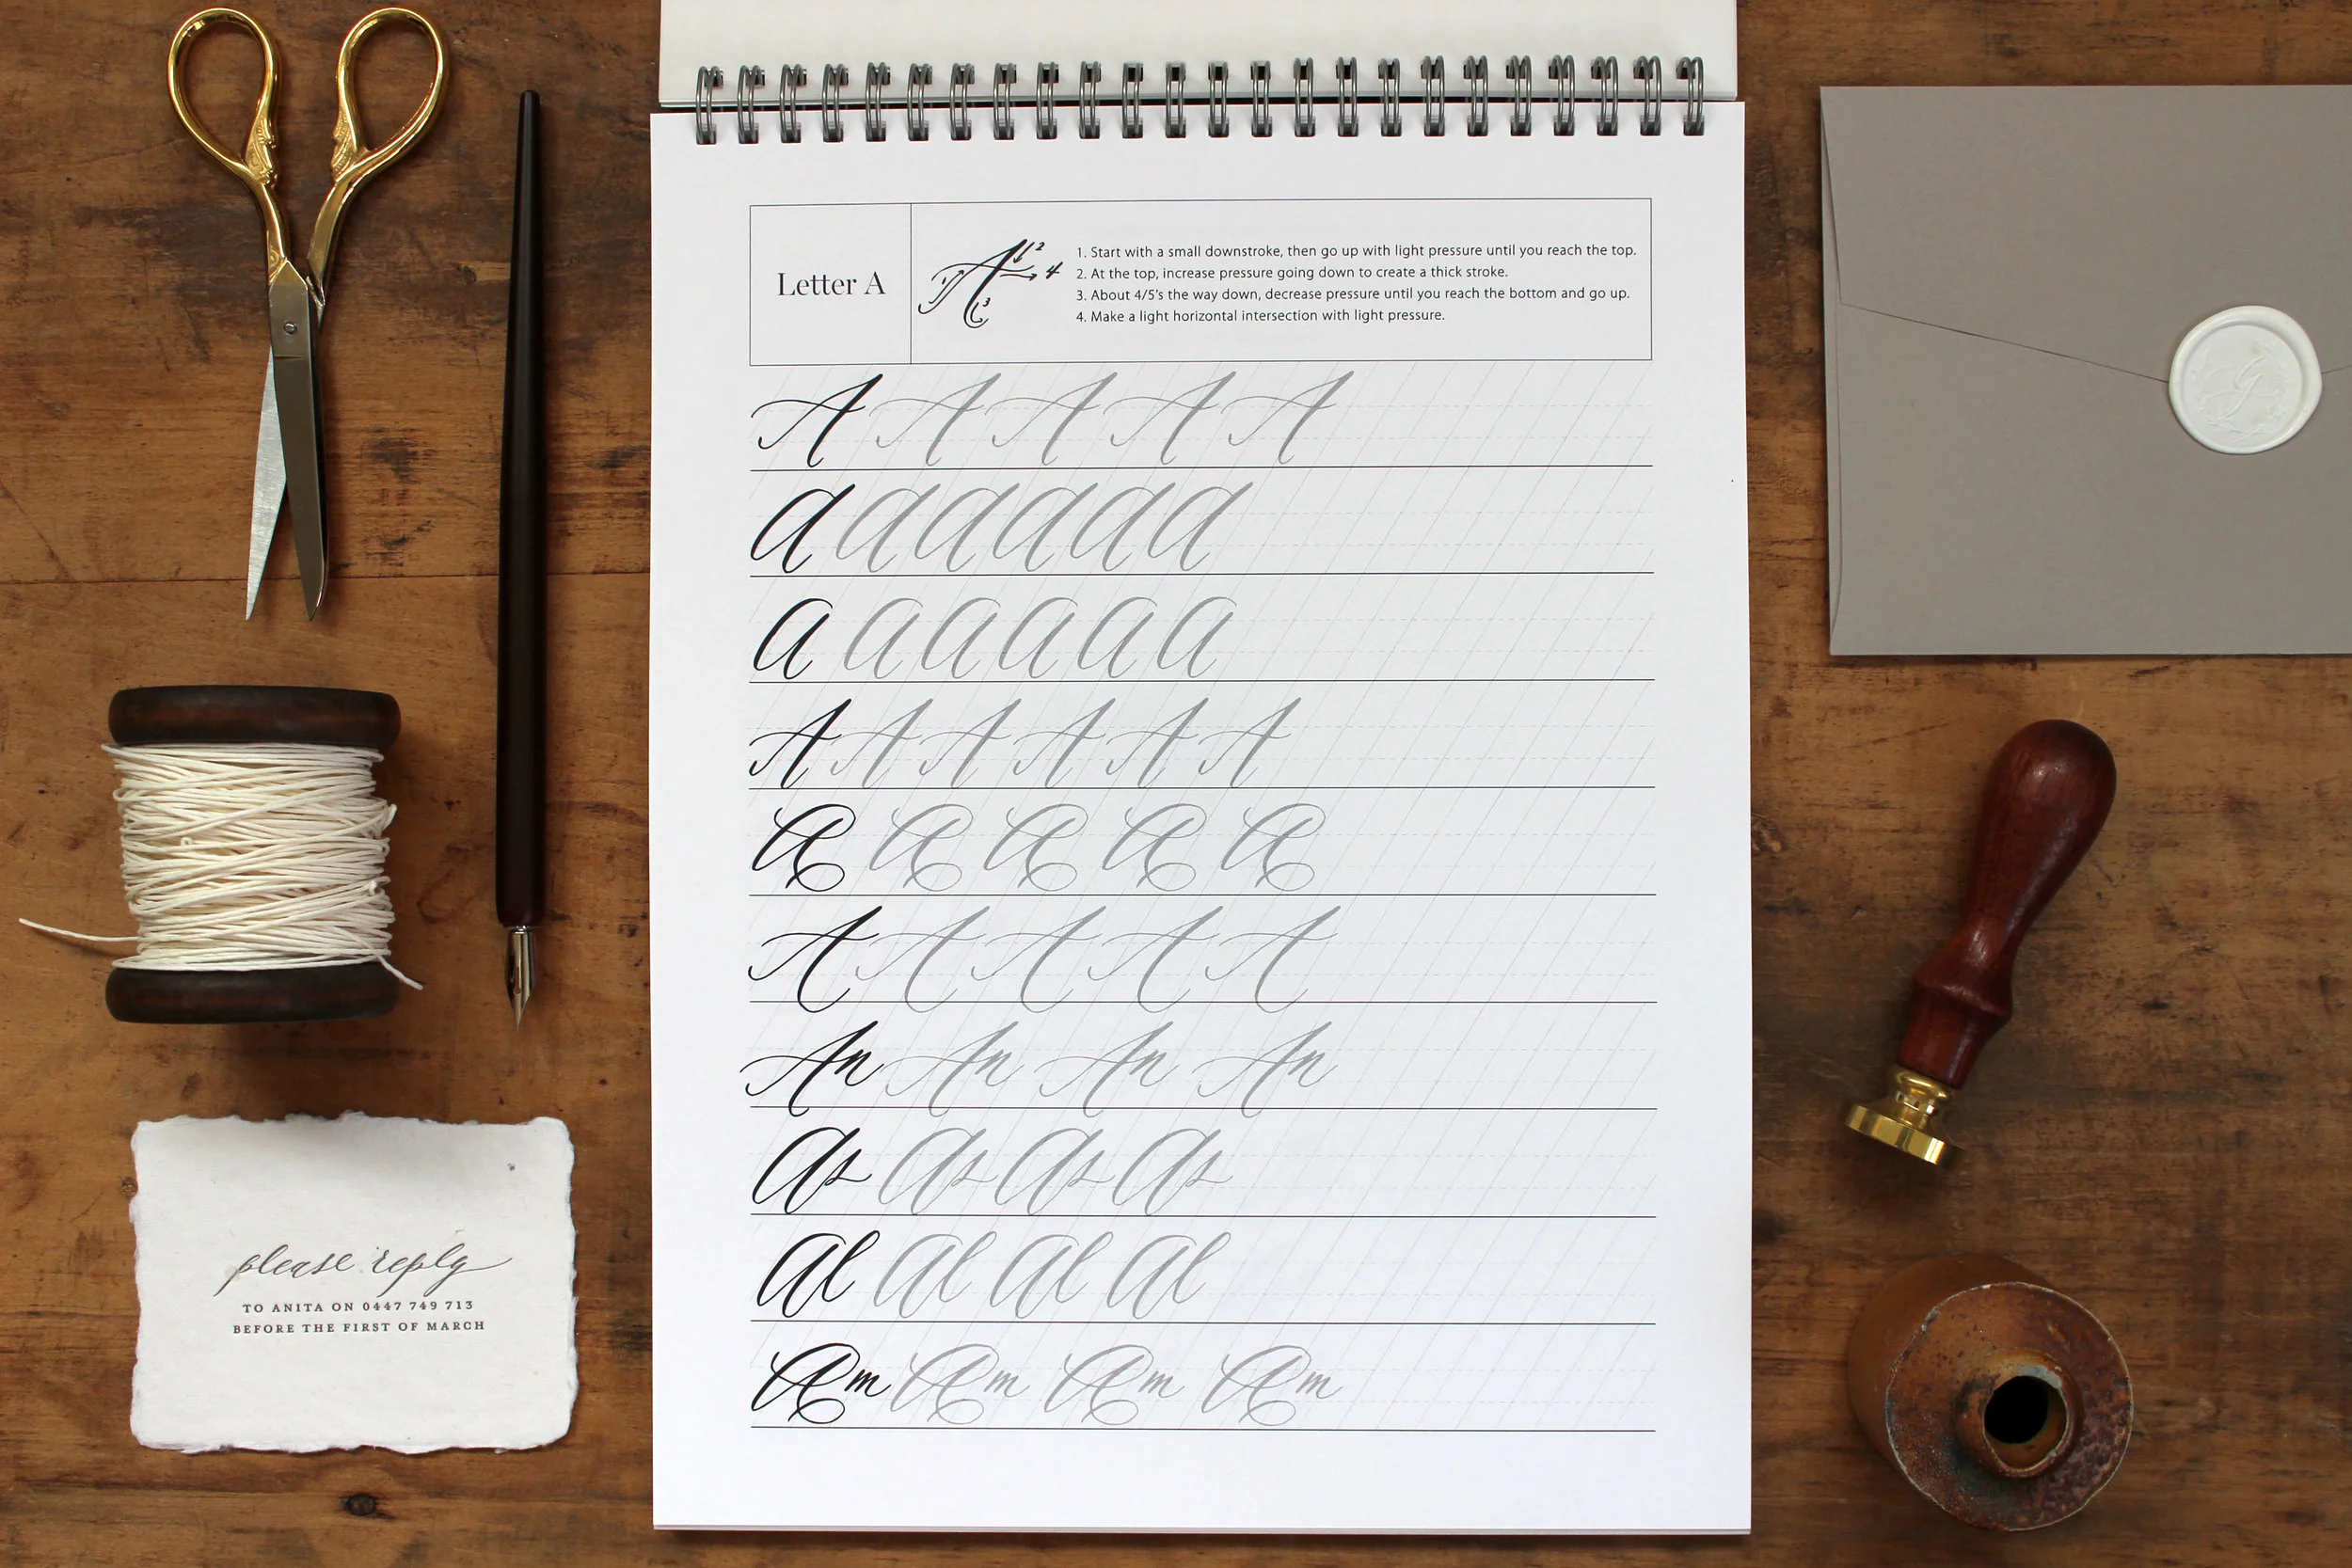 Letter A
A 1 2 3 4
1. Start with a small downstroke, then go up with light pressure until you reach the top.
2. At the top, increase pressure going down to create a thick stroke.
3. About 4/5's the way down, decrease pressure until you reach the bottom and go up.
4. Make a light horizontal intersection with light pressure.
A A A A A
A A A A A A
A A A A A A
A A A A A A
A A A A A
A A A A A
An An An An
As As As As
Al Al Al Al
Am Am Am Am
please reply
TO ANITA ON 0447 749 713
BEFORE THE FIRST OF MARCH